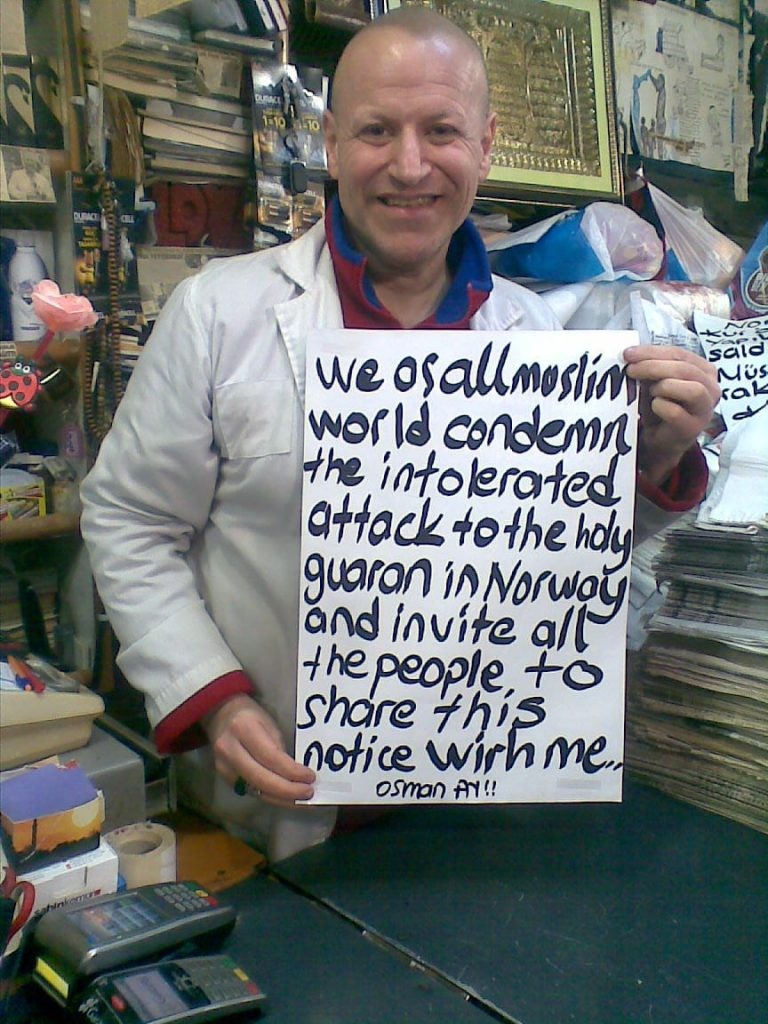 we as all muslim
world condemn
the intolerated
attack to the holy
guaran in Norway
and invite all
the people, to
share this
notice wirh me..
osman AY!!
DURACELL
1-10
DURAC CELL
said
Müs
rak